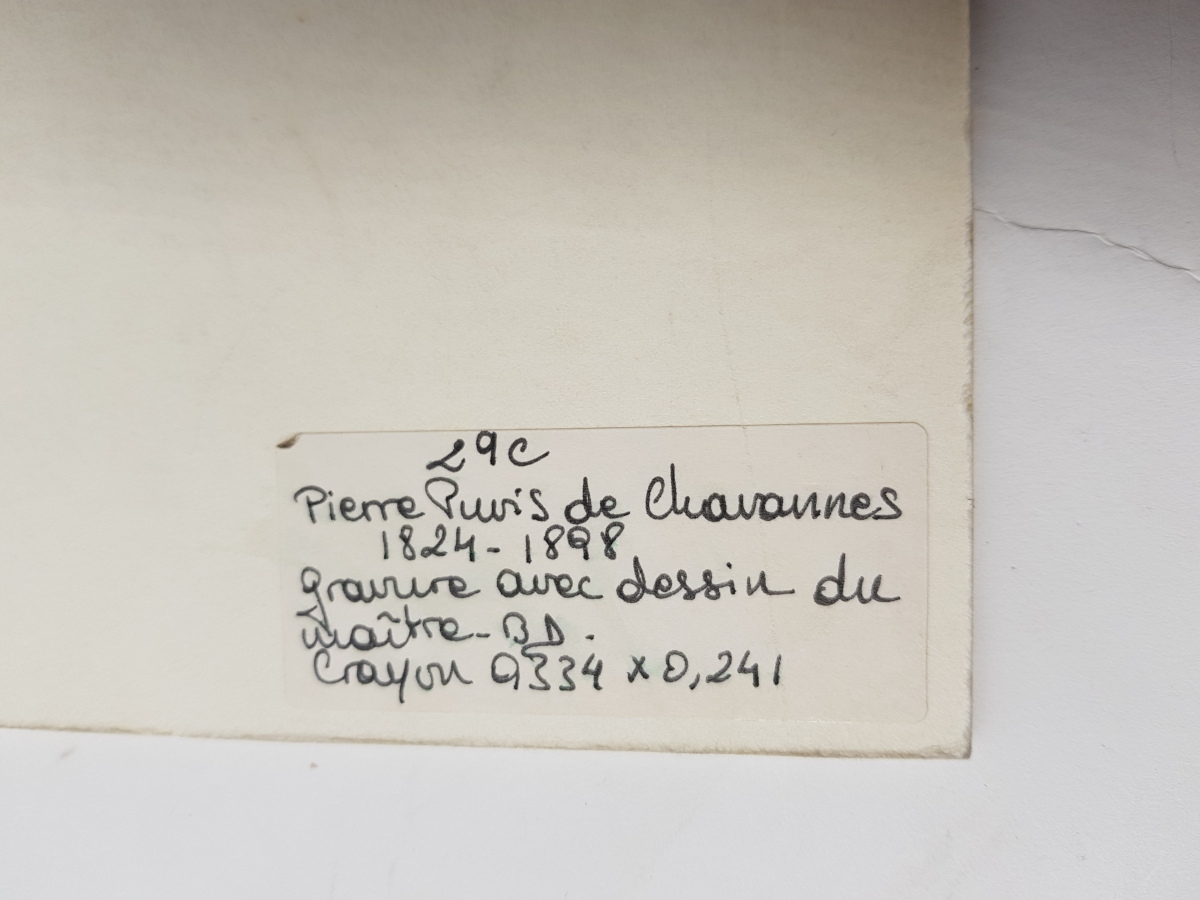 29C
Pierre Puvis de Chavannes
1824-1898
gravure avec dessin du
maître-BD.
Crayon 0,334 x 0,241